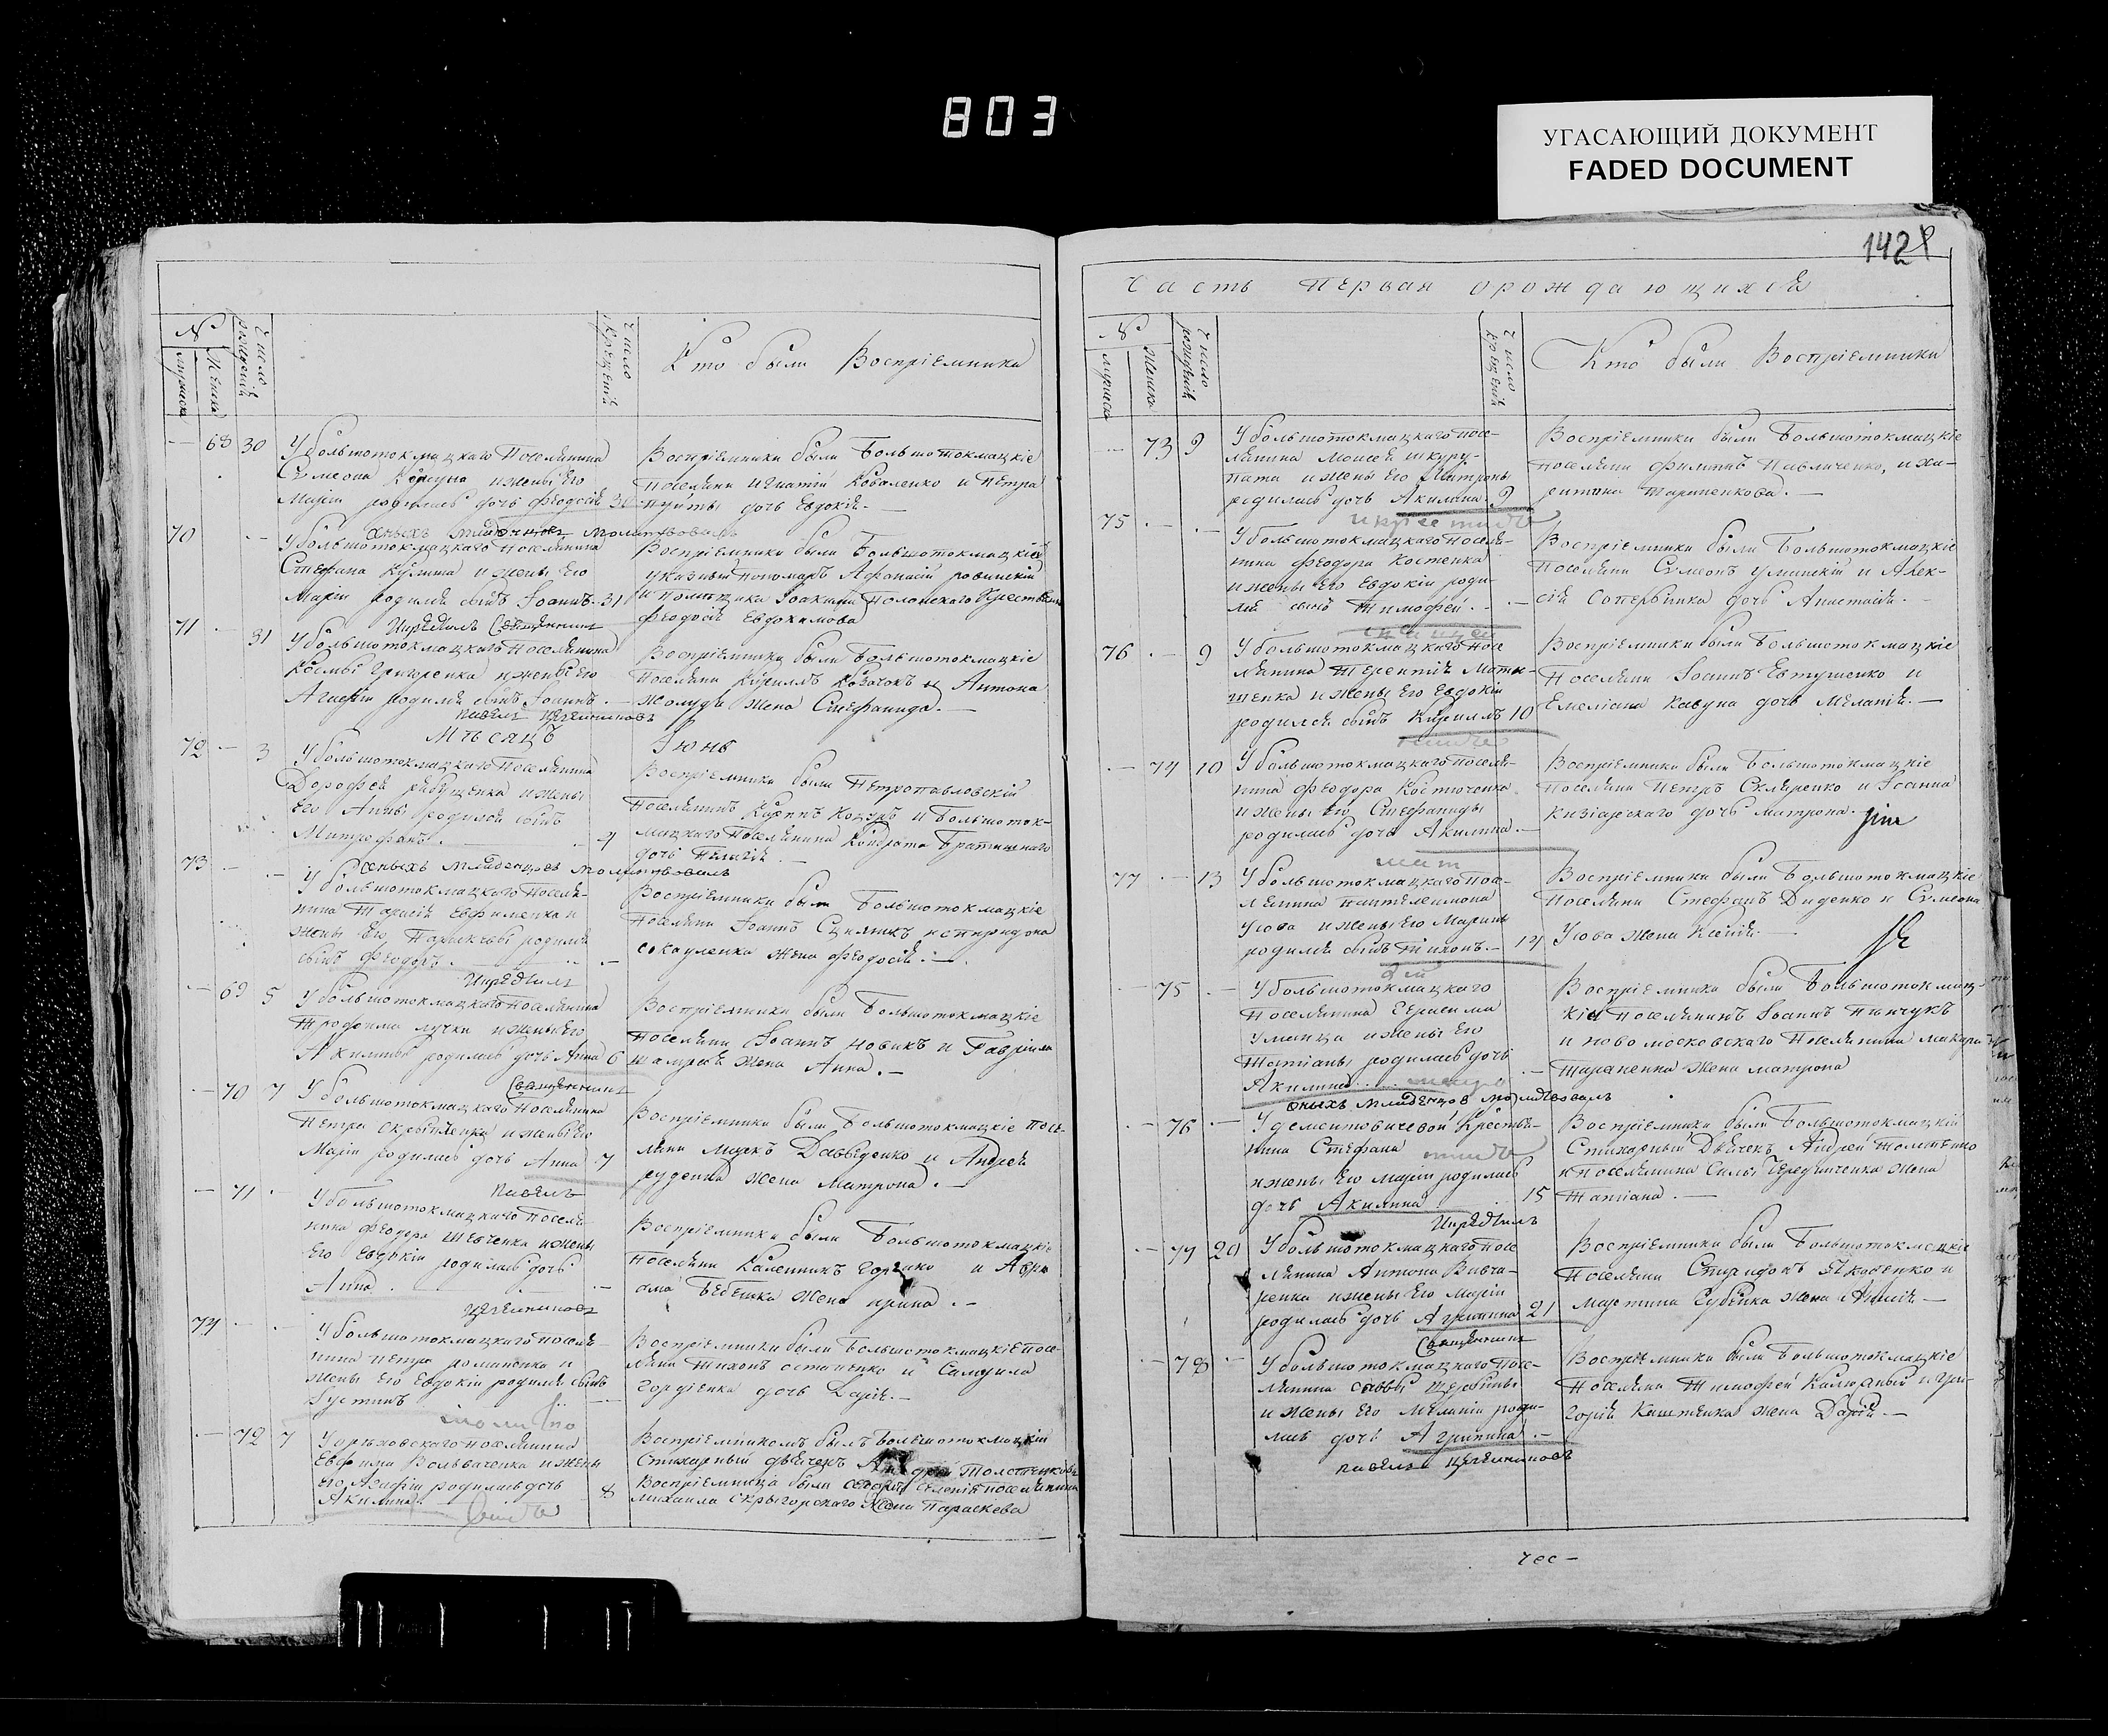 803
УГАСАЮЩИЙ ДОКУМЕНТ
FADED DOCUMENT
142
№
мужеска
женска
Число рожденій
Число крещеній
Кто были Воспріемники
68 30 У большотокмацкаго Поселянина
Сѵмеона Корсуна и жены Его
Маріи родилась дочь Феодосія 30
Воспріемники были Большотокмацкіе
Поселяни Игнатій Коваленко и Петра
дочь Евдокія. —
оныхъ младенцовъ молитвовалъ
70 У большотокмацкаго Поселянина
Стефана Кулиша и жены Его
Маріи родился сынъ Іоаннъ. 31
Воспріемники были Большотокмацкій
указный пономарь Афанасій ровинскій
и помѣщика Іоакима Полонскаго
Феодосія Евдокимова
И крестилъ Священникъ
71 31 У большотокмацкаго Поселянина
Космы Григоренка и жены Его
Агафіи родился сынъ Іоаннъ. —
Воспріемники были Большотокмацкіе
Поселяни Кириллъ Козачокъ и Антона
жолудя жена Стефанида. —
Павелъ
Мѣсяцъ Іюнь
72 3 У большотокмацкаго Поселянина
Дорофея рябущенка и жены
Его Анны родился сынъ
Митрофанъ. 4
Воспріемники были Петропавловскій
Поселянинъ Коцуръ и Большоток-
мацкаго Поселянина Кондрата
дочь Пелагія. —
оныхъ младенцовъ молитвовалъ
73 У большотокмацкаго Поселя-
нина Тарасія Евфименка и
жены Его Параскевы родился
сынъ Феодоръ. —
Воспріемники были Большотокмацкіе
Поселяни Іоаннъ и спиридона
жена Феодосія. —
И крестилъ
69 5 У большотокмацкаго Поселянина
Трофима лучки и жены Его
Акилины родилась дочь Анна 6
Воспріемники были Большотокмацкіе
Поселяни Іоаннъ новикъ и Гавріила
жена Анна. —
Священникъ
70 7 У большотокмацкаго Поселянина
Петра и жены Его
Маріи родилась дочь Анна 7
Воспріемники были Большотокмацкіе посе-
ляни Маркъ Давыденко и Андрея
руденка жена Матрона. —
Павелъ
71 У большотокмацкаго Поселя-
нина Феодора Шевченка и жены
Его Евдокіи родилась дочь
Анна
Воспріемники были Большотокмацкіе
Поселяни Каленникъ и
жена ирина. —
74 У большотокмацкаго поселя-
нина петра романенка и
жены Его Евдокіи родился сынъ
Іустинъ
Воспріемники были Большотокмацкіе посе-
ляни Тихонъ остапенко и Самуила
Гордіенка дочь Дарія. —
72 7 У орѣховскаго поселянина
Евфима и жены
его Агафіи родилась дочь
Акилина 8
Воспріемникомъ былъ большотокмацкій
Стихарный дьячекъ Андрей
Воспріемница была поселянина
михаила жена Параскева
Часть Первая о рождающихся
№
мужеска
женска
Число рожденій
Число крещеній
Кто были Воспріемники
73 9 У большотокмацкаго посе-
лянина Моисея шкуру-
пата и жены Его Матроны
родилась дочь Акилина. 9
Воспріемники были Большотокмацкіе
поселяни Филиппъ Павличенко, и ха-
ритина Тараненкова. —
75 У большотокмацкаго поселя-
нина Феодора Костенка
и жены Его Евдокіи роди-
лся сынъ Тимофей. —
Воспріемники были Большотокмацкіе
Поселяни Сѵмеонъ Уманскій и Алек-
сія дочь Анастасія. —
76 9 У большотокмацкаго посе
лянина Терентія Матю-
шенка и жены Его Евдокіи
родился сынъ Кириллъ 10
Воспріемники были Большотокмацкіе
Поселяни Іоаннъ Евтушенко и
Емеліана Кавуна дочь Меланія. —
74 10 У большотокмацкаго поселя-
нина Феодора Костюченка
и жены его Стефаниды
родилась дочь Акилина. —
Воспріемники были Большотокмацкіе
Поселяни Петръ Скляренко и Іоанна
Кизіарскаго дочь матрона.
77 13 У большотокмацкаго пос-
елянина Пантелеимона
Усова и жены Его Марины
родился сынъ Тихонъ. — 14
Воспріемники были Большотокмацкіе
Поселяни Стефанъ Диденко и Сѵмеона
Усова жена Ксенія. —
75 У большотокмацкаго
Поселянина Герасима
Уманца и жены Его
Татіаны родилась дочь
Акилина
Воспріемники были Большотокмац-
кій Поселянинъ Іоаннъ Пинчукъ
и новомосковскаго Поселянина макарія
Тараненка жена матрона
оныхъ младенцовъ молитвовалъ
76 У дементовичевой Крестья-
нина Стефана
и жены Его маріи родилась
дочь Акилина 15
Воспріемники были Большотокмацкій
Стихарный Дьячекъ Андрей
и поселянина Силы жена
Татіана. —
И крестилъ
77 20 У большотокмацкаго посе
лянина Антона Вивча-
ренка и жены Его Маріи
родилась дочь Агрипина 21
Воспріемники были Большотокмацкіе
Поселяни Спиридонъ Яковенко и
Мартина жена —
Священникъ
78 У большотокмацкаго посе-
лянина саввы щербины
и жены Его Меланіи роди-
лась дочь Агрипина. —
Воспріемники были Большотокмацкіе
Поселяни Тимофей Калюжный и Гри-
горія жена Дарія —
Павелъ